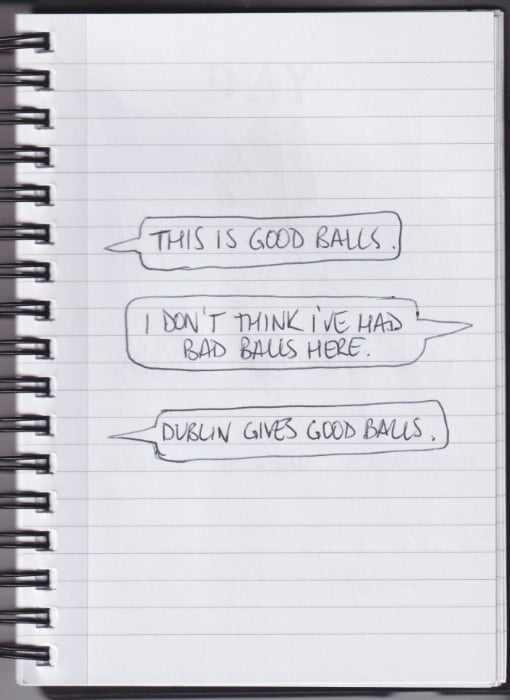 THIS IS GOOD BALLS.
I DON'T THINK I'VE HAD
BAD BALLS HERE.
DUBLIN GIVES GOOD BALLS.